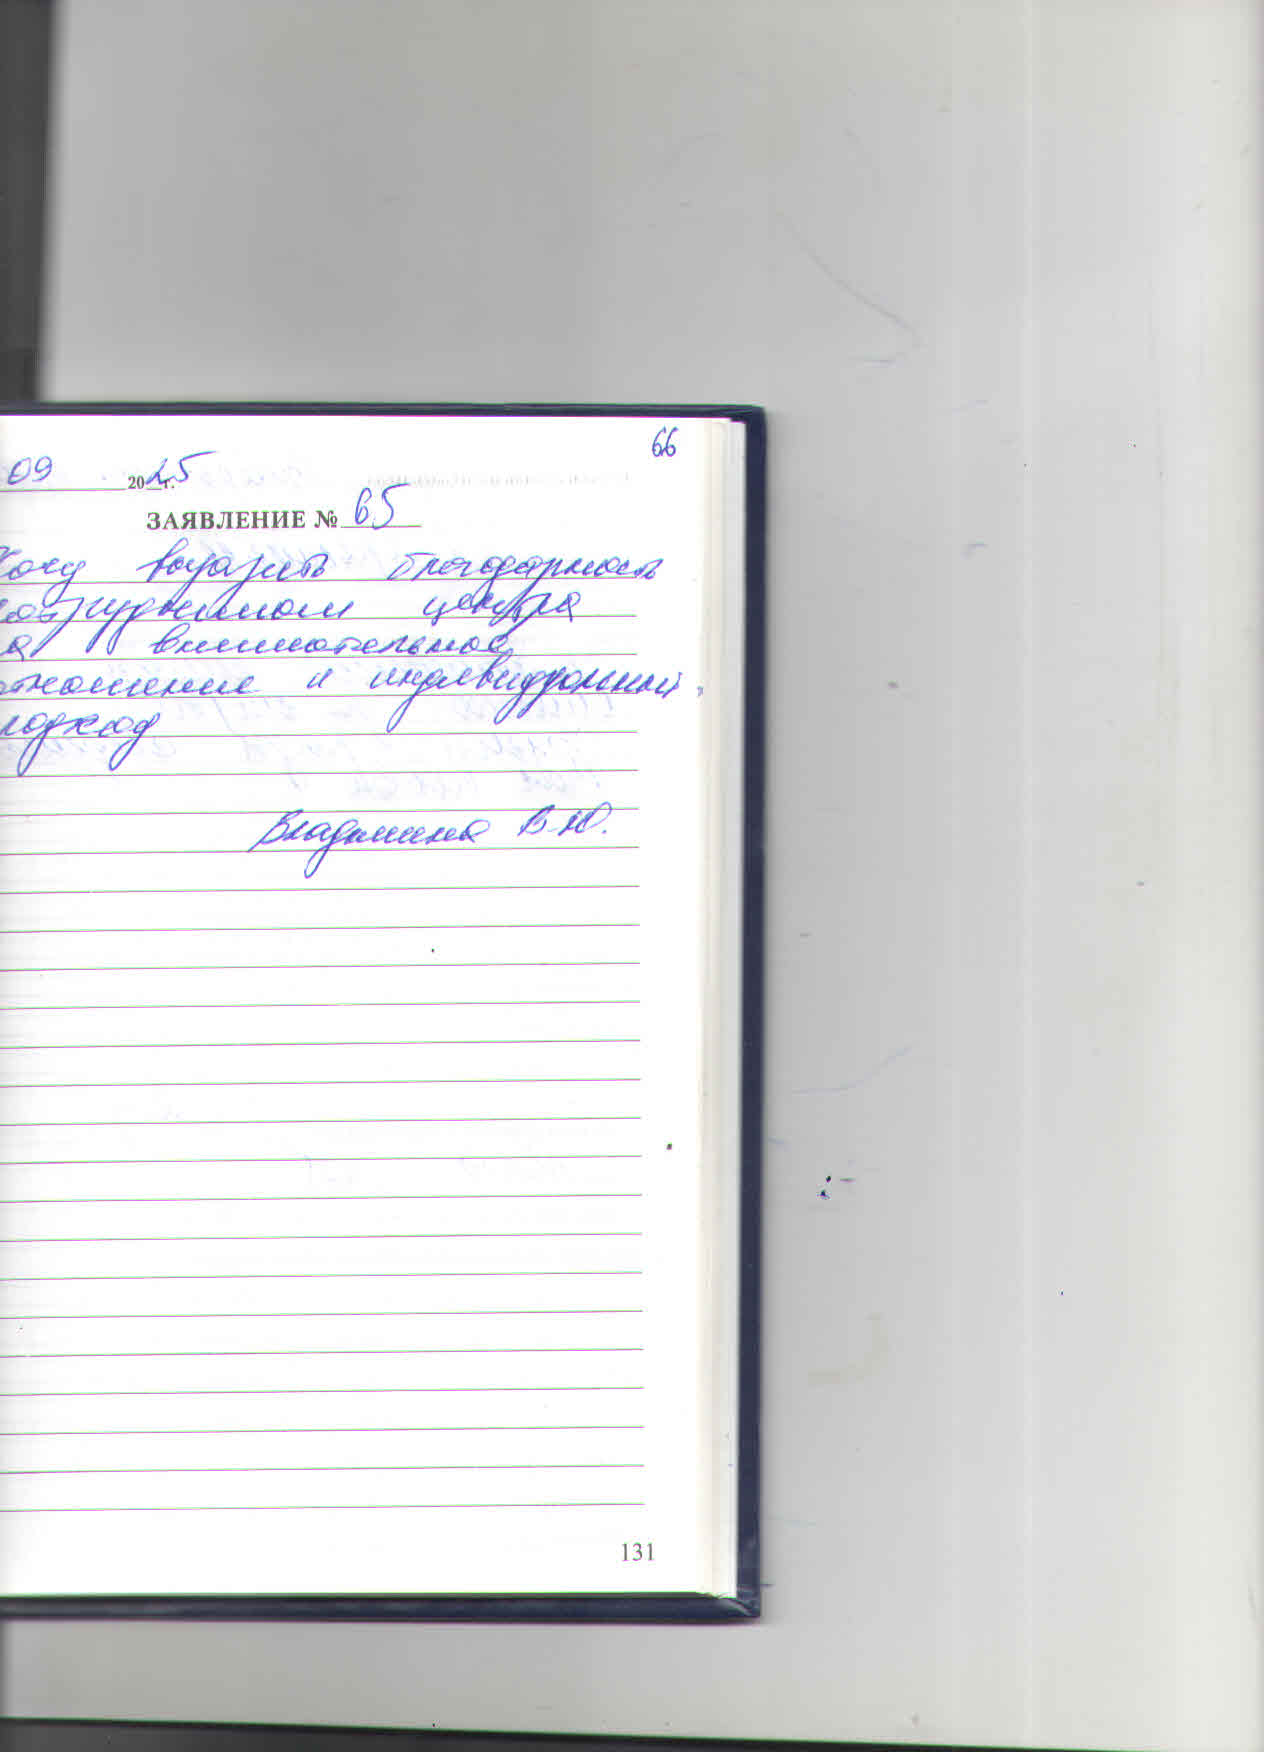 66
09 2025г.
ЗАЯВЛЕНИЕ № 65
Хочу выразить благодарность
сотрудникам центра
за внимательное
отношение и индивидуальный
подход
Владимина В.Ю.
131